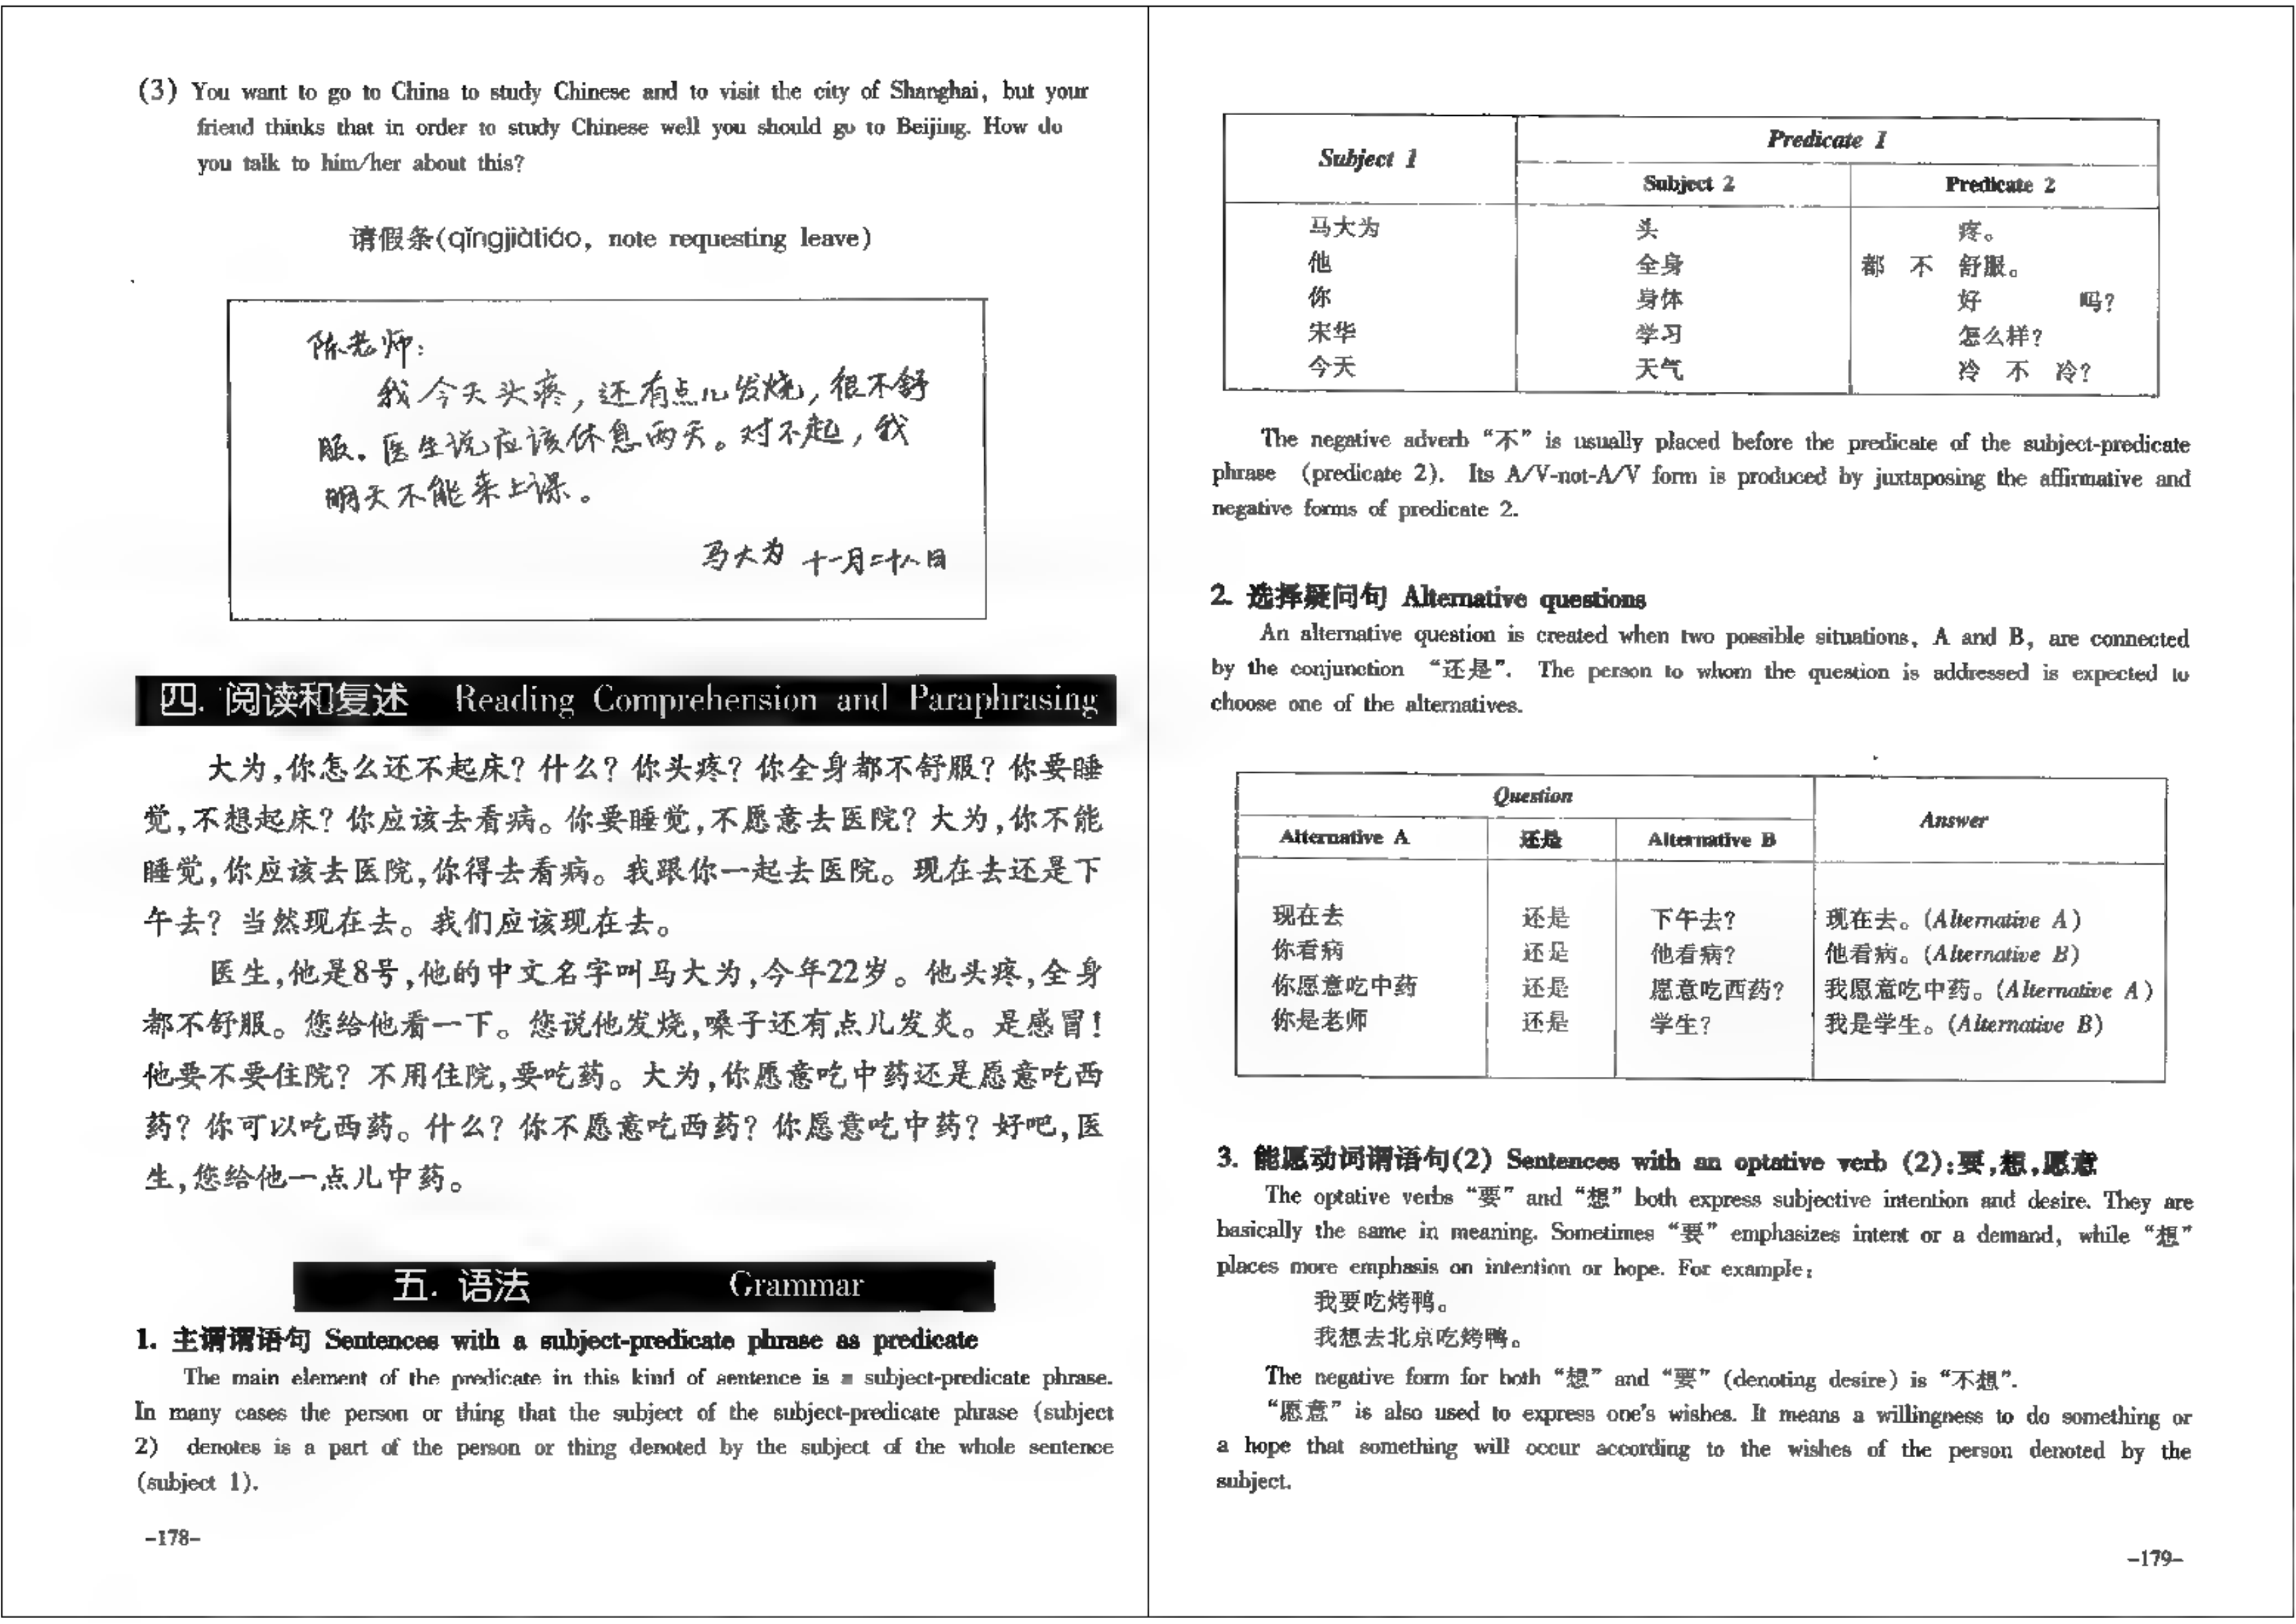 (3) You want to go to China to study Chinese and to visit the city of Shanghai, but your
friend thinks that in order to study Chinese well you should go to Beijing. How do
you talk to him/her about this?
请假条(qǐngjiàtiáo, note requesting leave)
陈老师:
我今天头疼,还有点儿发烧,很不舒
服。医生说应该休息两天。对不起,我
明天不能来上课。
马大为 十一月二十八日
四. 阅读和复述 Reading Comprehension and Paraphrasing
大为,你怎么还不起床? 什么? 你头疼? 你全身都不舒服? 你要睡
觉,不想起床? 你应该去看病。你要睡觉,不愿意去医院? 大为,你不能
睡觉,你应该去医院,你得去看病。我跟你一起去医院。现在去还是下
午去? 当然现在去。我们应该现在去。
医生,他是8号,他的中文名字叫马大为,今年22岁。他头疼,全身
都不舒服。您给他看一下。您说他发烧,嗓子还有点儿发炎。是感冒!
他要不要住院? 不用住院,要吃药。大为,你愿意吃中药还是愿意吃西
药? 你可以吃西药。什么? 你不愿意吃西药? 你愿意吃中药? 好吧,医
生,您给他一点儿中药。
五. 语法 Grammar
1. 主谓谓语句 Sentences with a subject-predicate phrase as predicate
The main element of the predicate in this kind of sentence is a subject-predicate phrase.
In many cases the person or thing that the subject of the subject-predicate phrase (subject
2) denotes is a part of the person or thing denoted by the subject of the whole sentence
(subject 1).
-178-
Subject 1 Predicate 1
Subject 2 Predicate 2
马大为 头 疼。
他 全身 都 不 舒服。
你 身体 好 吗?
宋华 学习 怎么样?
今天 天气 冷 不 冷?
The negative adverb “不” is usually placed before the predicate of the subject-predicate
phrase (predicate 2). Its A/V-not-A/V form is produced by juxtaposing the affirmative and
negative forms of predicate 2.
2. 选择疑问句 Alternative questions
An alternative question is created when two possible situations, A and B, are connected
by the conjunction “还是”. The person to whom the question is addressed is expected to
choose one of the alternatives.
Question Answer
Alternative A 还是 Alternative B
现在去 还是 下午去? 现在去。(Alternative A)
你看病 还是 他看病? 他看病。(Alternative B)
你愿意吃中药 还是 愿意吃西药? 我愿意吃中药。(Alternative A)
你是老师 还是 学生? 我是学生。(Alternative B)
3. 能愿动词谓语句(2) Sentences with an optative verb (2):要,想,愿意
The optative verbs “要” and “想” both express subjective intention and desire. They are
basically the same in meaning. Sometimes “要” emphasizes intent or a demand, while “想”
places more emphasis on intention or hope. For example:
我要吃烤鸭。
我想去北京吃烤鸭。
The negative form for both “想” and “要” (denoting desire) is “不想”.
“愿意” is also used to express one's wishes. It means a willingness to do something or
a hope that something will occur according to the wishes of the person denoted by the
subject.
-179-